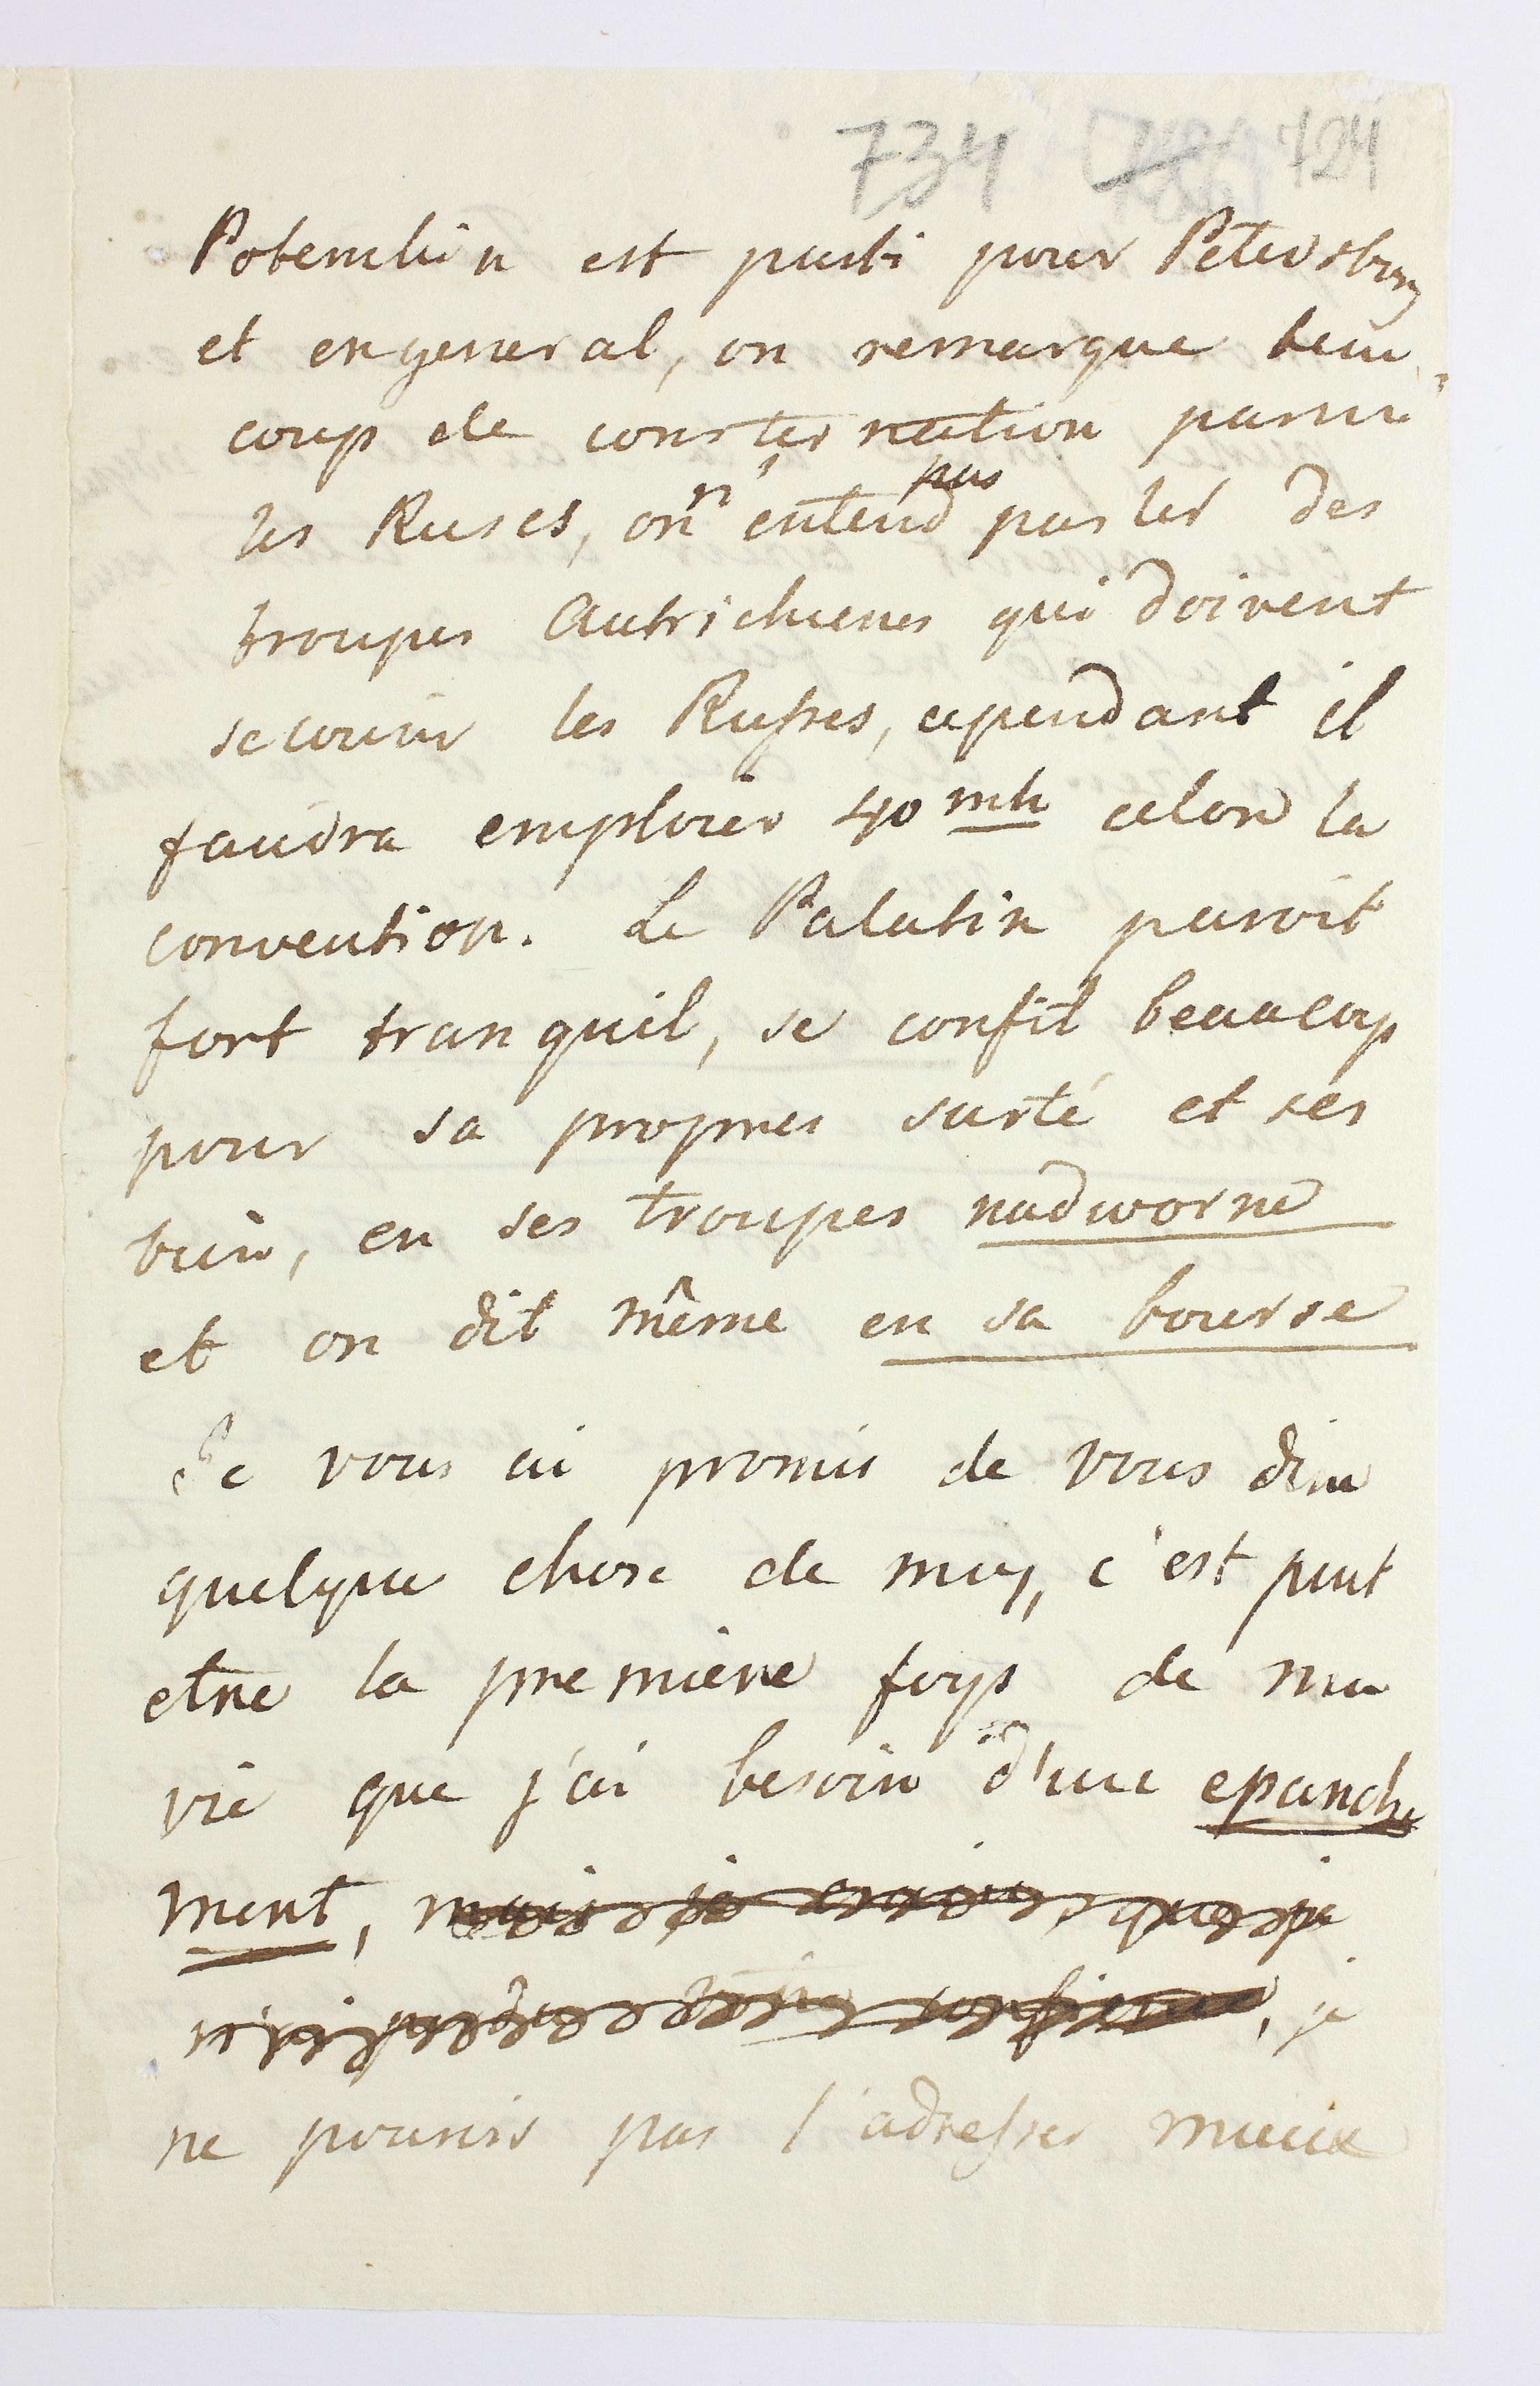 734 424
Potemkin est parti pour Petersburg
et en general, on remarque beau
coup de consternation parmi
les Ruses, on n'entend pas parler des
troupes Autrichienes qui doivent
secourir les Russes, cependant il
faudra emploier 40 mh celon la
convention. Le Palatin paroit
fort tranquil, se confit beaucoup
pour sa propres surté et ses
bien, en ses troupes nadworne
et on dit même en sa bourse
Je vous ai promis de vous dire
quelque chose de moy, c'est peut
etre la premiere foys de ma
vie que j'ai besoin d'une epanche
ment, mais je crains que je
n'ai confience, je
ne pourois pas l'adresser mieux